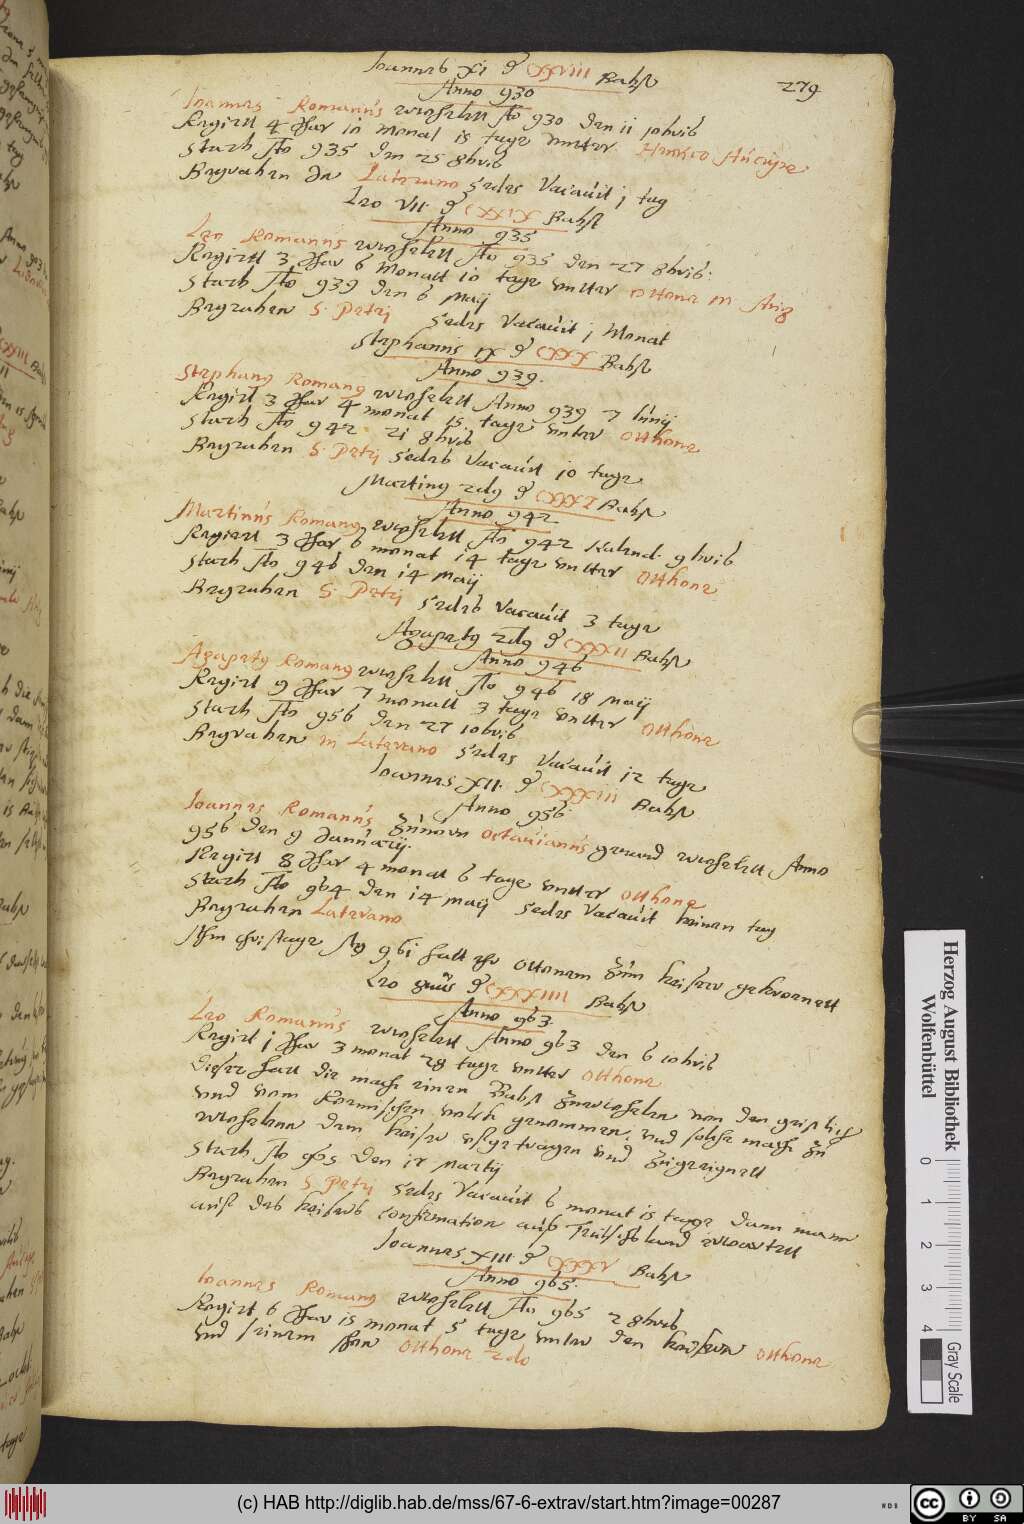 279
Ioannes XI d CXXVIII Babst
Anno 930
Ioannes Romanus erwehelett Ao 930 den 11 10bris
Regirtt 4 Jhar 10 monat 15 tage vntter Henrico Aucupe
Starb Ao 935 den 25 8bris
Begraben In Laterano Sedes Vacauit j tag
Leo VII d CXXIX Babst
Anno 935
Leo Romanus erwehelett Ao 935 den 27 8bris
Regirtt 3 Jhar 6 Monatt 10 tage vntter Ottone m
Starb Ao 939 den 6 Maij
Begraben S. Petrj Sedes Vacauit j Monat
Stephanus IX d CXXX Babst
Anno 939.
Stephanus Romanus erwehelett Anno 939 7 Iunij
Regirt 3 Jhar 4 monat 15 tage vnter Otthone
Starb Ao 942 21 8bris
Begraben S. Petrj Sedes Vacauit 10 tage
Martinus 2dus d CXXXI Babst
Anno 942
Martinus Romanus erwehelett Ao 942 Kalend. 9bris
Regiert 3 Jhar 6 monat 14 tage vntter Otthone
Starb Ao 946 den 14 Maij
Begraben S Petrj Sedes Vacauit 3 tage
Agapetus 2dus d CXXXII Babst
Anno 946
Agapetus Romanus erwehelett Ao 946 18 Maij
Regirt 9 Jhar 7 monatt 3 tage vntter Otthone
Starb Ao 956 den 27 10bris
Begraben in Laterano Sedes Vacauit 12 tage
Ioannes XII. d CXXXIII Babst
Anno 956.
Ioannes Romanus Zuuorn Octauianus genand erwehelett Anno
956 den 9 Januarij.
Regirt 8 Jhar 4 monat 6 tage vntter Otthone
Starb Ao 964 den 14 Maij Sedes Vacauit keinen tag
Begraben Laterano
Am christage Ao 961 hatt ehr Ottonem Zum keiser gekroenett
Leo 8uus d CXXXIIII Babst
Anno 963.
Leo Romanus erwehelett Anno 963 den 6 10bris
Regirt j Jhar 3 monat 28 tage vntter Otthone
Dieser hatt die macht einen Babst Zuerwehelen von den geistlich
vnd vom Roemischen volck genommen, vnd solche macht Zu
erwehelenn dem keiser vfgetragen vnd Zugeeignett
Starb Ao 965 den 12 Martij
Begraben S Petrj Sedes Vacauit 6 monat 15 tage Dann mann
auff des keisers confirmation auss Teutschland erwartett
Ioannes XIII d CXXXV Babst
Anno 965.
Ioannes Romanus erwehelett Ao 965 2 8bris
Regirt 6 Jhar 15 monat 5 tage vnter den keisern Otthone
vnd seinem son Otthone 2do
Herzog August Bibliothek
Wolfenbüttel
0 1 2 3 4
Gray Scale
(c) HAB http://diglib.hab.de/mss/67-6-extrav/start.htm?image=00287
WDB
cc BY SA